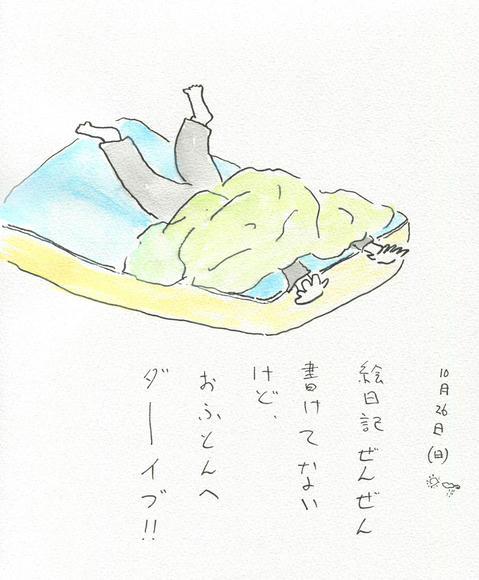 10月26日(日)
絵日記ぜんぜん
書けてない
けど、
おふとんへ
ダーイブ!!